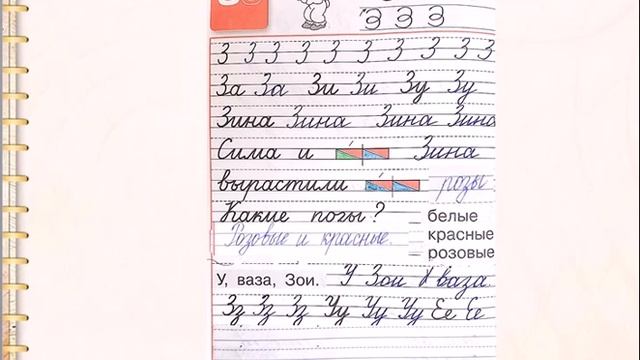 З З З
З З З З З З З З З З
За За Зи Зи Зу Зу
Зина Зина Зина Зина
Сима и Зина
вырастили розы
Какие розы? белые
Розовые и красные. красные
розовые
У, ваза, Зои. У Зои ваза.
Зз Зз Зз Уу Уу Уу Ее Ее